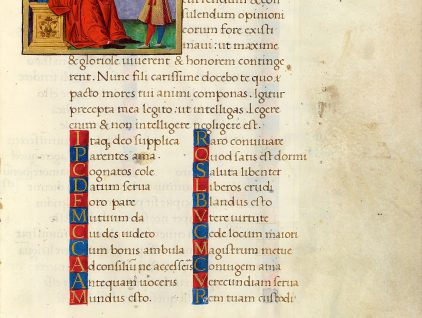 sulendum opinioni
eorum fore existi
maui: ut maxime
& gloriose uiuerent & honorem continge
rent. Nunc fili carissime docebo te quo
pacto mores tui animi componas. Igitur
precepta mea legito: ut intelligas. Legere
enim & non intelligere negligere est.
Itaq; deo supplica
Parentes ama
Cognatos cole
Datum serua
Foro pare
Mutuum da
Cui des uideto
Cum bonis ambula
Ad consiliũ ne accesseis
Antequam uoceris
Mundus esto.
Raro conuiuare
Quod satis est dormi
Saluta libenter
Liberos erudi
Blandus esto
Vtere uirtute
Cede locum maiori
Magistrum metue
Coniugem ama
Verecundiam serua
Rem tuam custodi